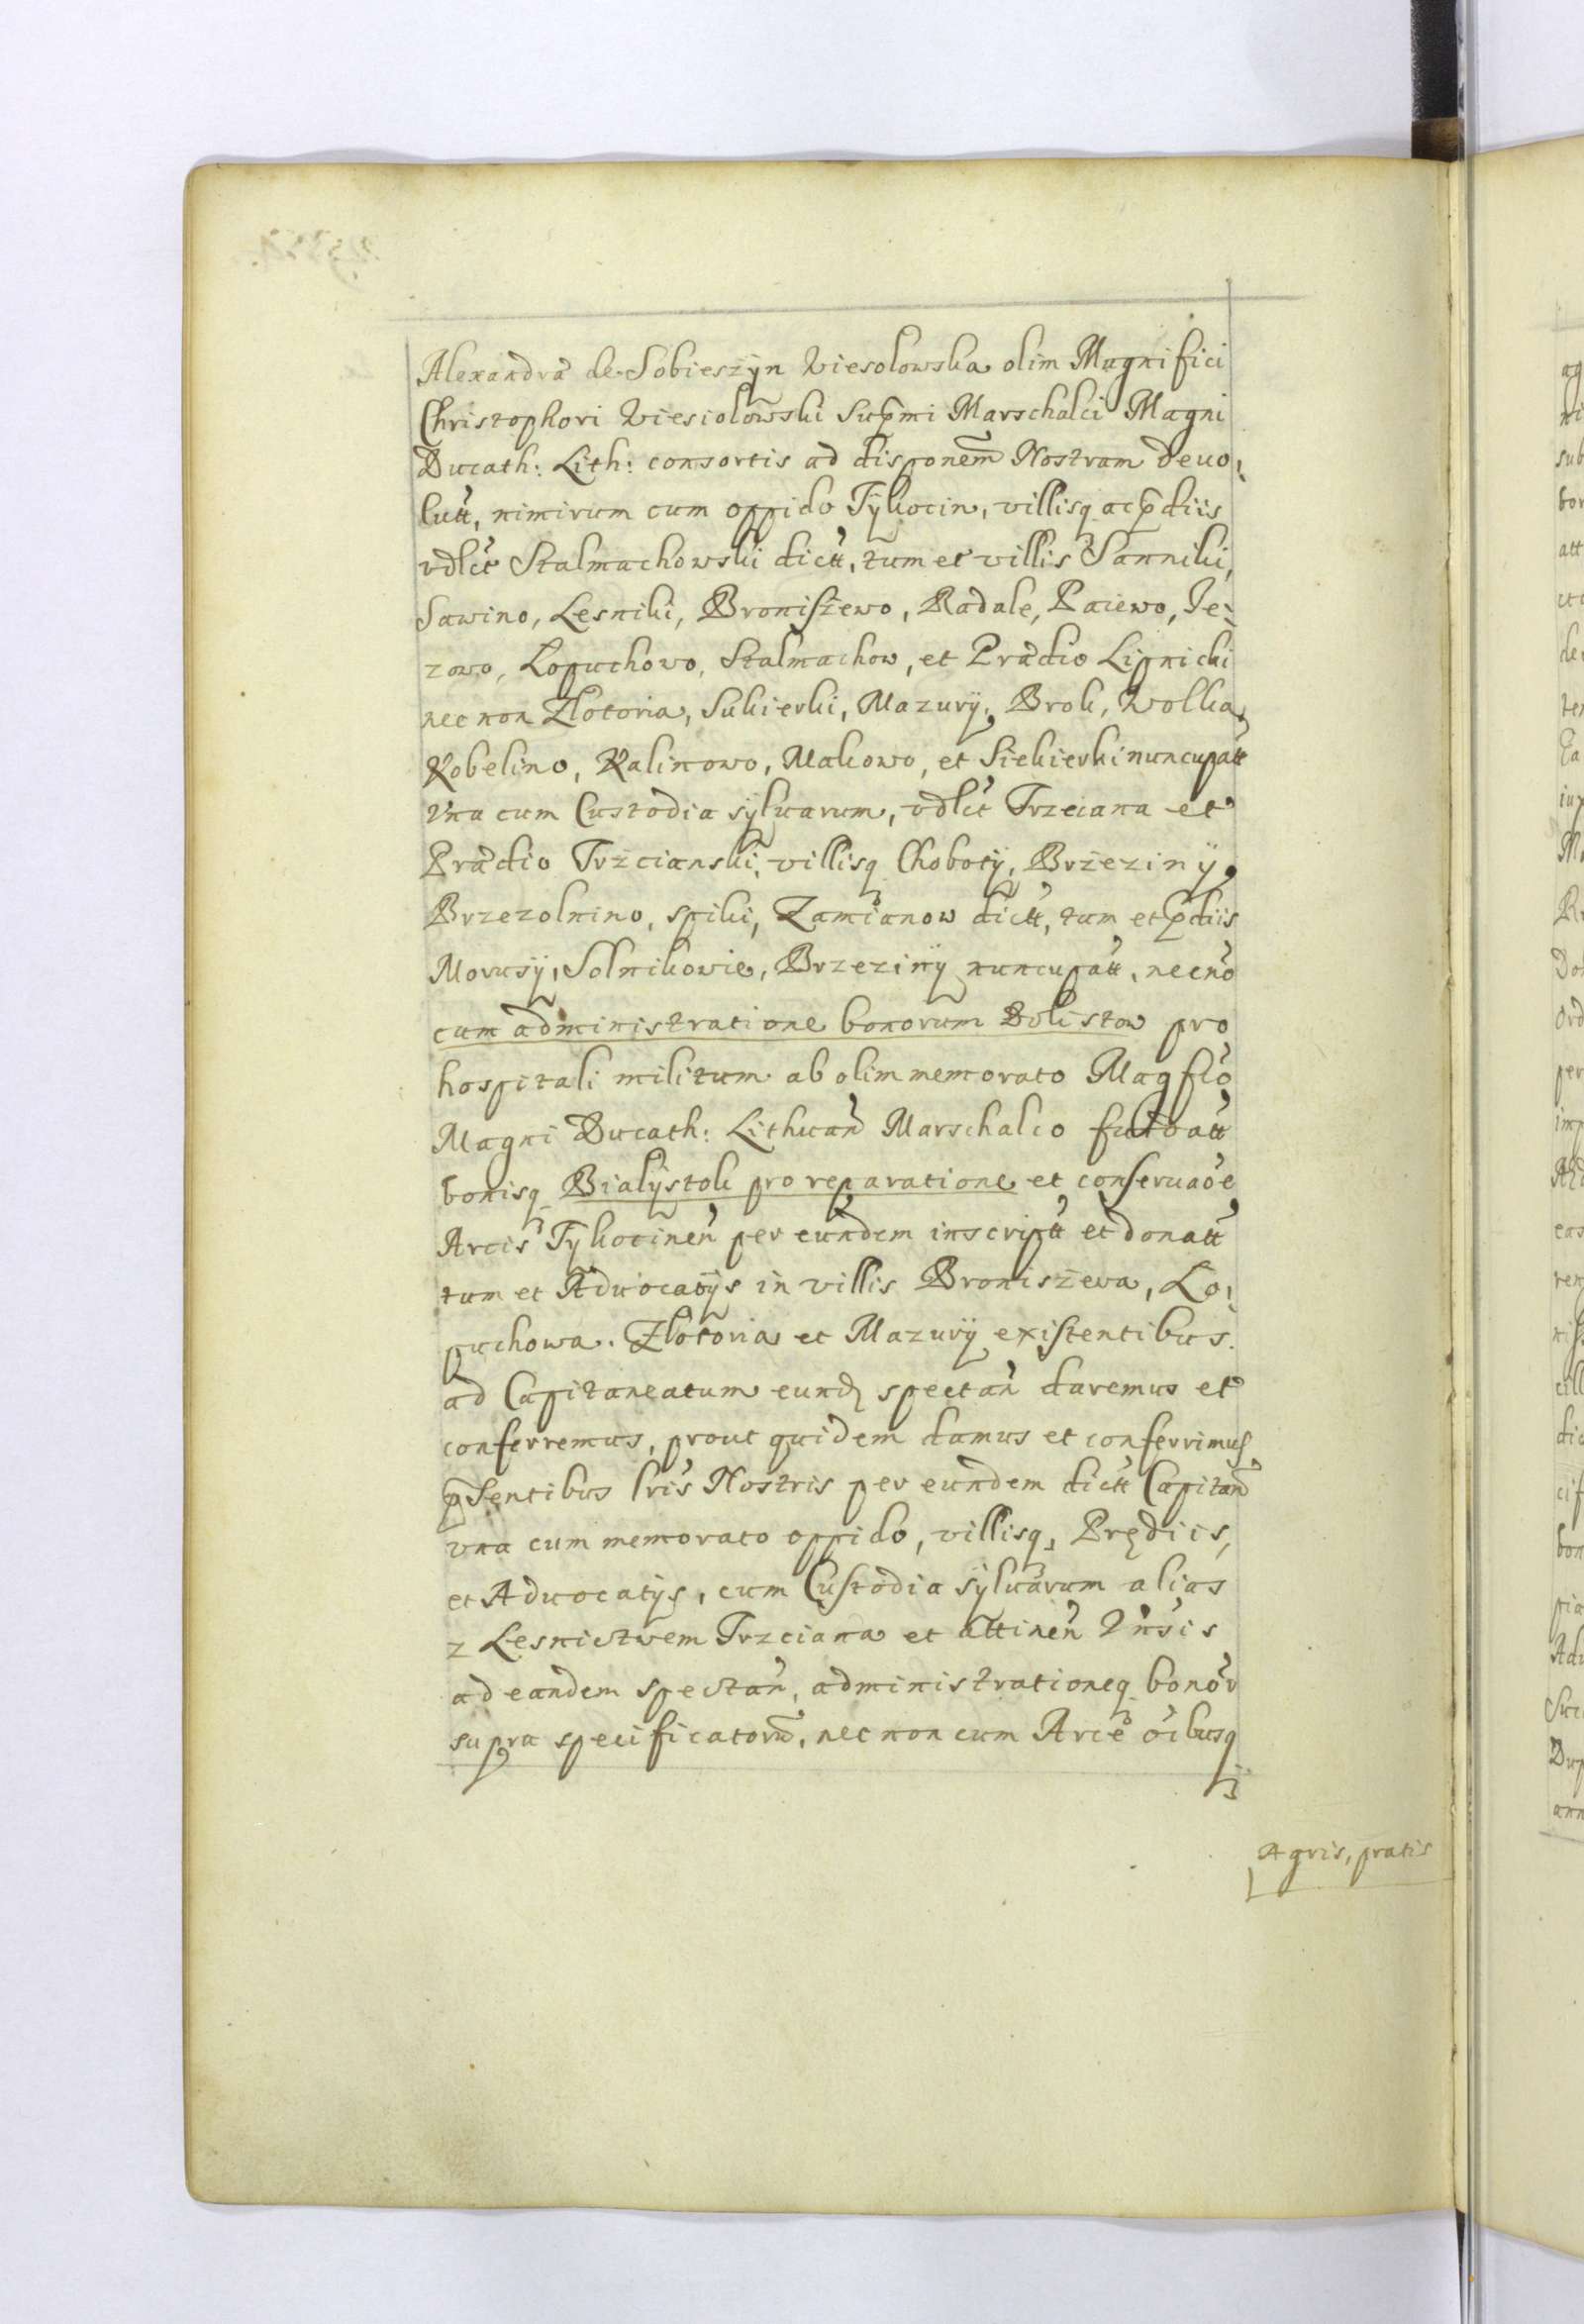 Alexandra de Sobieszyn Viesolowska olim Magnifici
Christophori Viesiolowski Supmi Marschalci Magni
Ducath: Lith: consortis ad disponem̃ Nostram devo:
lutt, nimirum cum oppido Tykocin, villisq ac p̃diis
vdlct Stalmachowski dictt, tum et villis Sanniki,
Sawino, Lesniki, Broniszewo, Radule, Paiewo, Je:
zowo, Lopuchowo, Stalmachow, et Prædio Lipnicki
nec non Zlotoria, Sukierki, Mazury, Brok, Wolka
Kobelino, Kalinowo, Makowo, et Siekierki nuncupatt
Vna cum Custodia sylvarum, vdlct Trzciana et
Prædio Trzcianski, villisq Choboty, Brzeziny,
Brzezolnino, spiki, Zamianow dictt, tum et p̃diis
Morusy, Solnikowie, Brzeziny nuncupatt, necnõ
cum administratione bonorum Dolistow pro
hospitali militum ab olim memorato Magfco
Magni Ducath: Lithuan̄ Marschalco fundatt
bonisq Bialystok pro reparatione et conservaõe
Arcis Tykocinen̄ per eundem inscriptt et donatt
tum et Advocatijs in villis Broniszewa, Lo:
puchowa. Zlotoria et Mazury existentibus.
ad Capitaneatum eund spectan̄ daremus et
conferremus, prout quidem damus et conferrimus
p̃sentibus lr̃is Nostris per eundem dictt Capitan̄
vna cum memorato oppido, villisq, Prędiis,
et Aduocatijs, cum Custodia sylvarum alias
z Lesnictwem Trzciana et attinen̄ Vnsis
ad eandem spectan̄, administrationeq bonõr
supra specificatorũ, nec non cum Arce oĩbusq
Agris, pratis